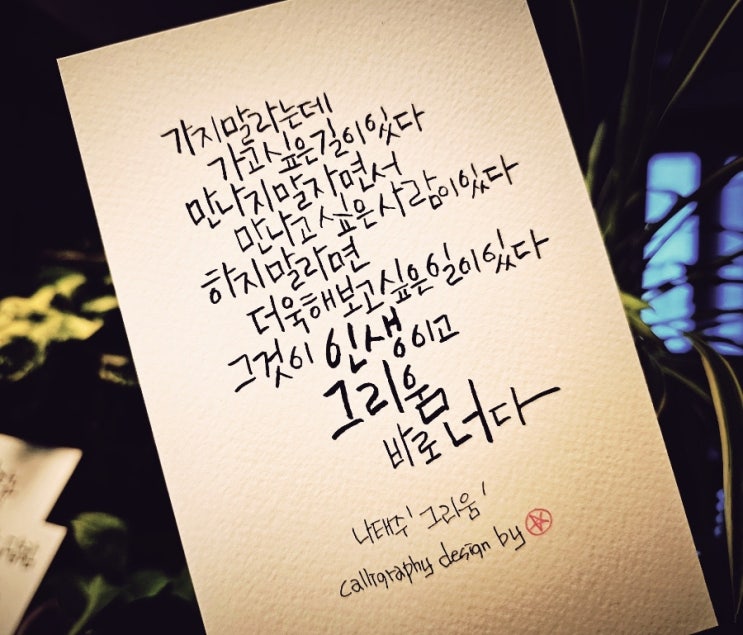 가지말라는데
가고싶은길이있다
만나지말자면서
만나고싶은사람이있다
하지말라면
더욱해보고싶은일이있다
그것이 인생이고
그리움
바로 너다
나태주 '그리움'
calligraphy design by